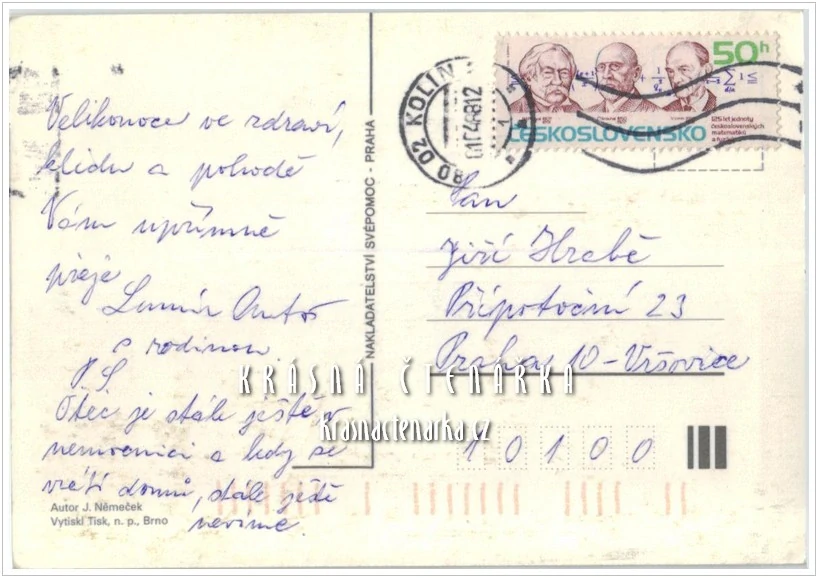 Velikonoce ve zdraví,
klidu a pohodě
Vám upřímně
přeje
s rodinou
PS
Otec je stále ještě v
nemocnici a kdy se
vrátí domů, stále ještě
nevíme.
Autor J. Němeček
Vytiskl Tisk, n. p., Brno
NAKLADATELSTVÍ SVÉPOMOC - PRAHA
280 02 KOLÍN
50h
ČESKOSLOVENSKO
125 let jednoty
československých
matematiků
Pan
Jiří Hrabě
Přípotoční 23
Praha 10-Vršovice
10100
KRÁSNÁ ČTENÁRKA
krasnactenarka.cz